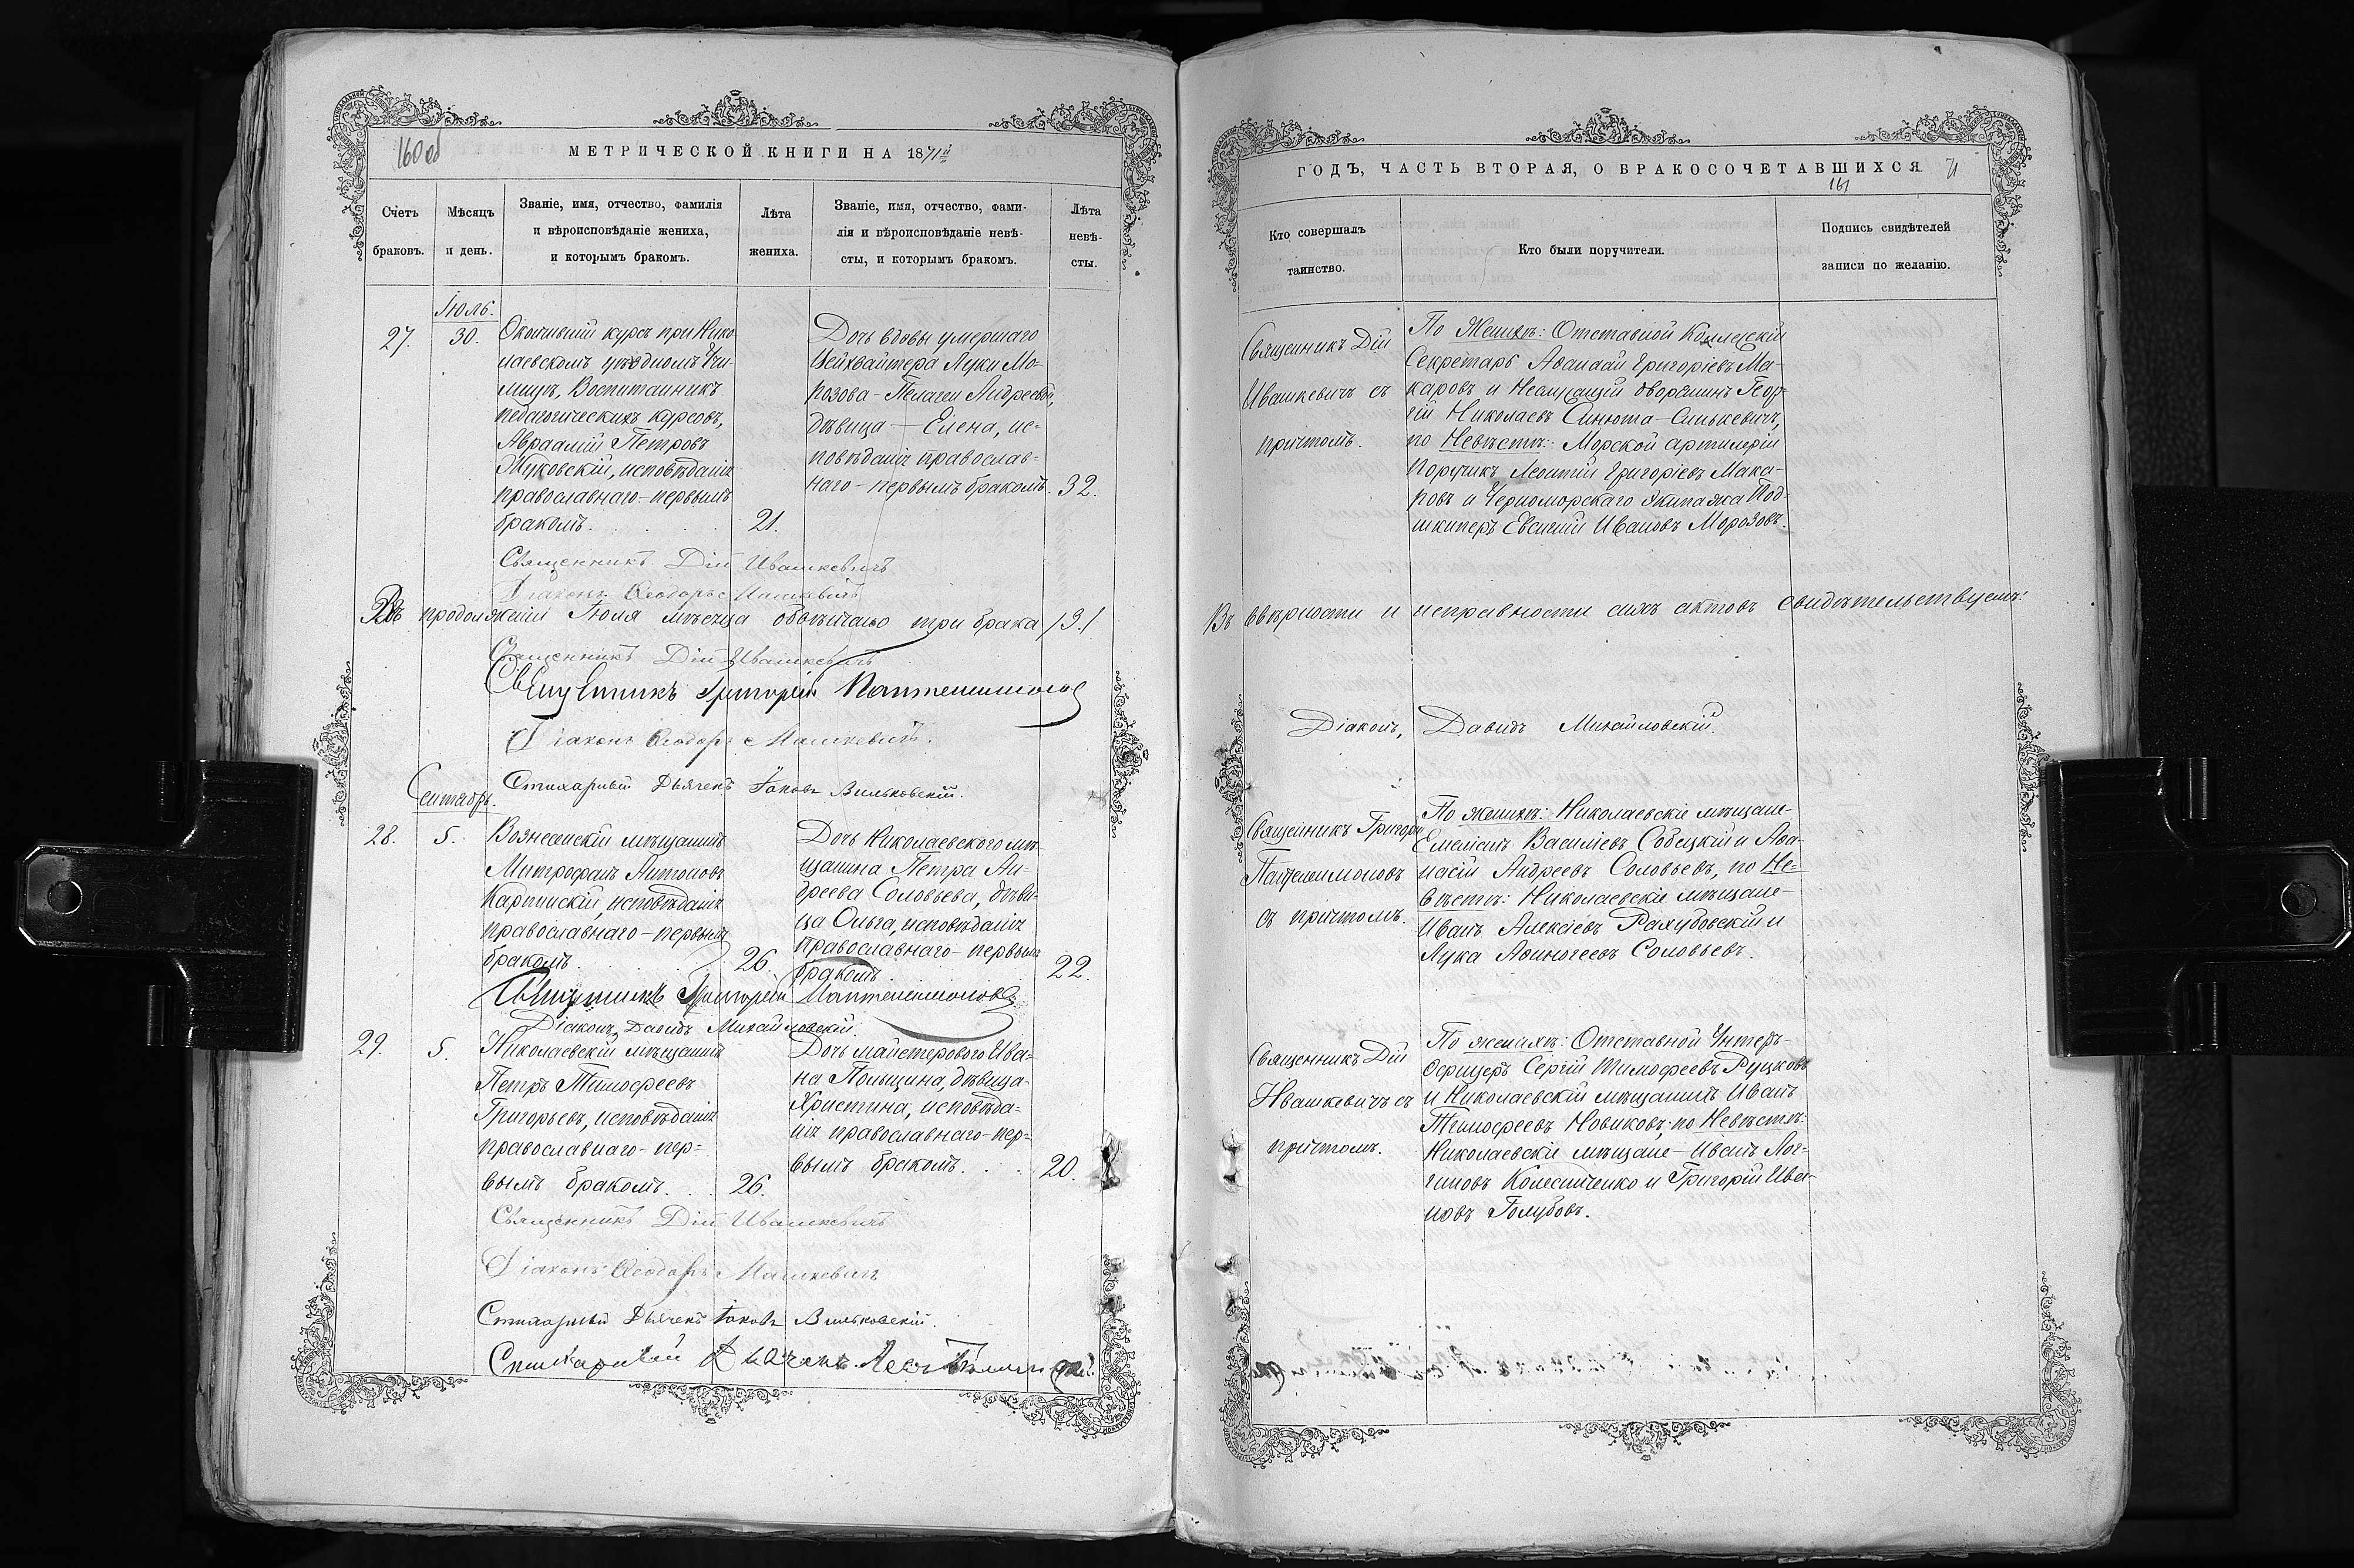 160 об
МЕТРИЧЕСКОЙ КНИГИ НА 1871й
Счетъ браковъ.
Мѣсяцъ и день.
Званіе, имя, отчество, фамилія
и вѣроисповѣданіе жениха,
и которымъ бракомъ.
Лѣта
жениха.
Званіе, имя, отчество, фами-
лія и вѣроисповѣданіе невѣ-
сты, и которымъ бракомъ.
Лѣта
невѣ-
сты.
Іюль.
27.
30.
Окончившій курсъ при Нико
лаевскомъ уѣздномъ Учи-
лищѣ, Воспитанникъ
педагогическихъ курсовъ,
Авраамій Петровъ
Жуковскій, исповѣданія
православнаго - первымъ
бракомъ.
21.
Дочь вдовы умершаго
Цейхвайтера Луки Мо-
розова - Пелагеи Андреевой,
дѣвица - Елена, ис-
повѣданія православ-
наго - первымъ бракомъ.
32.
Священникъ Дій Ивашкевичъ
Діаконъ Ѳеодоръ Машкевичъ
Въ продолженіи Іюля мѣсяца обвѣнчано три брака /3./
Священникъ Дій Ивашкевичъ
Священникъ Григорій Пантелимоновъ
Діаконъ Ѳеодоръ Машкевичъ.
Стихарный Дьячекъ Іаковъ Вильковскій.
Сентябрь.
28.
5.
Вознесенскій мѣщанинъ
Митрофанъ Антоновъ
Карпинскій, исповѣданія
православнаго - первымъ
бракомъ.
26.
Дочь Николаевского мѣ-
щанина Петра Ан-
дреева Соловьева, дѣви-
ца Ольга, исповѣданія
православнаго - первымъ
бракомъ.
22.
Священникъ Григорій Пантелимоновъ
Діаконъ, Давидъ Михайловскій.
29.
5.
Николаевскій мѣщанинъ
Петръ Тимофеевъ
Григорьевъ, исповѣданія
православнаго - пер-
вымъ бракомъ.
26.
Дочь мастероваго Ива-
на Польщина, дѣвица -
Христина, исповѣда-
нія православнаго - пер-
вымъ бракомъ.
20.
Священникъ Дій Ивашкевичъ
Діаконъ Ѳеодоръ Машкевичъ
Стихарный Дьячекъ Іаковъ Вильковскій.
Стихарный Дьячекъ
ГОДЪ, ЧАСТЬ ВТОРАЯ, О БРАКОСОЧЕТАВШИХСЯ
161
Кто совершалъ
таинство.
Кто были поручители.
Подпись свидѣтелей
записи по желанію.
Священникъ Дій
Ивашкевичъ съ
причтомъ.
По Женихѣ: Отставной Коллежскій
Секретарь Аѳанасій Григорьевъ Ма-
каровъ и Неслужащій дворянинъ Геор-
гій Николаевъ Синюта - Синькевичъ,
по Невѣстѣ: Морской артилеріи
Поручикъ Леонтій Григорьевъ Мака-
ровъ и Черноморскаго экипажа Под-
шкиперъ Евсевій Ивановъ Морозовъ.
Въ вѣрности и исправности сихъ актовъ свидѣтельствуемъ:
Діаконъ, Давидъ Михайловскій.
Священникъ Григорій
Пантелимоновъ
съ причтомъ.
По женихѣ: Николаевскіе мѣщане -
Емеліанъ Василіевъ Собецкій и Аѳа-
насій Андреевъ Соловьевъ, по Не-
вѣстѣ: Николаевскіе мѣщане -
Иванъ Алексіевъ Рахубовскій и
Лука Аѳиногеевъ Соловьевъ.
Священникъ Дій
Ивашкевичъ съ
причтомъ.
По женихѣ: Отставной Унтеръ-
офицеръ Сергій Тимофеевъ Руцковъ
и Николаевскій мѣщанинъ Иванъ
Тимофеевъ Новиковъ; по Невѣстѣ:
Николаевскіе мѣщане - Иванъ Лог-
гиновъ Колесниченко и Григорій Ива-
новъ Голубовъ.